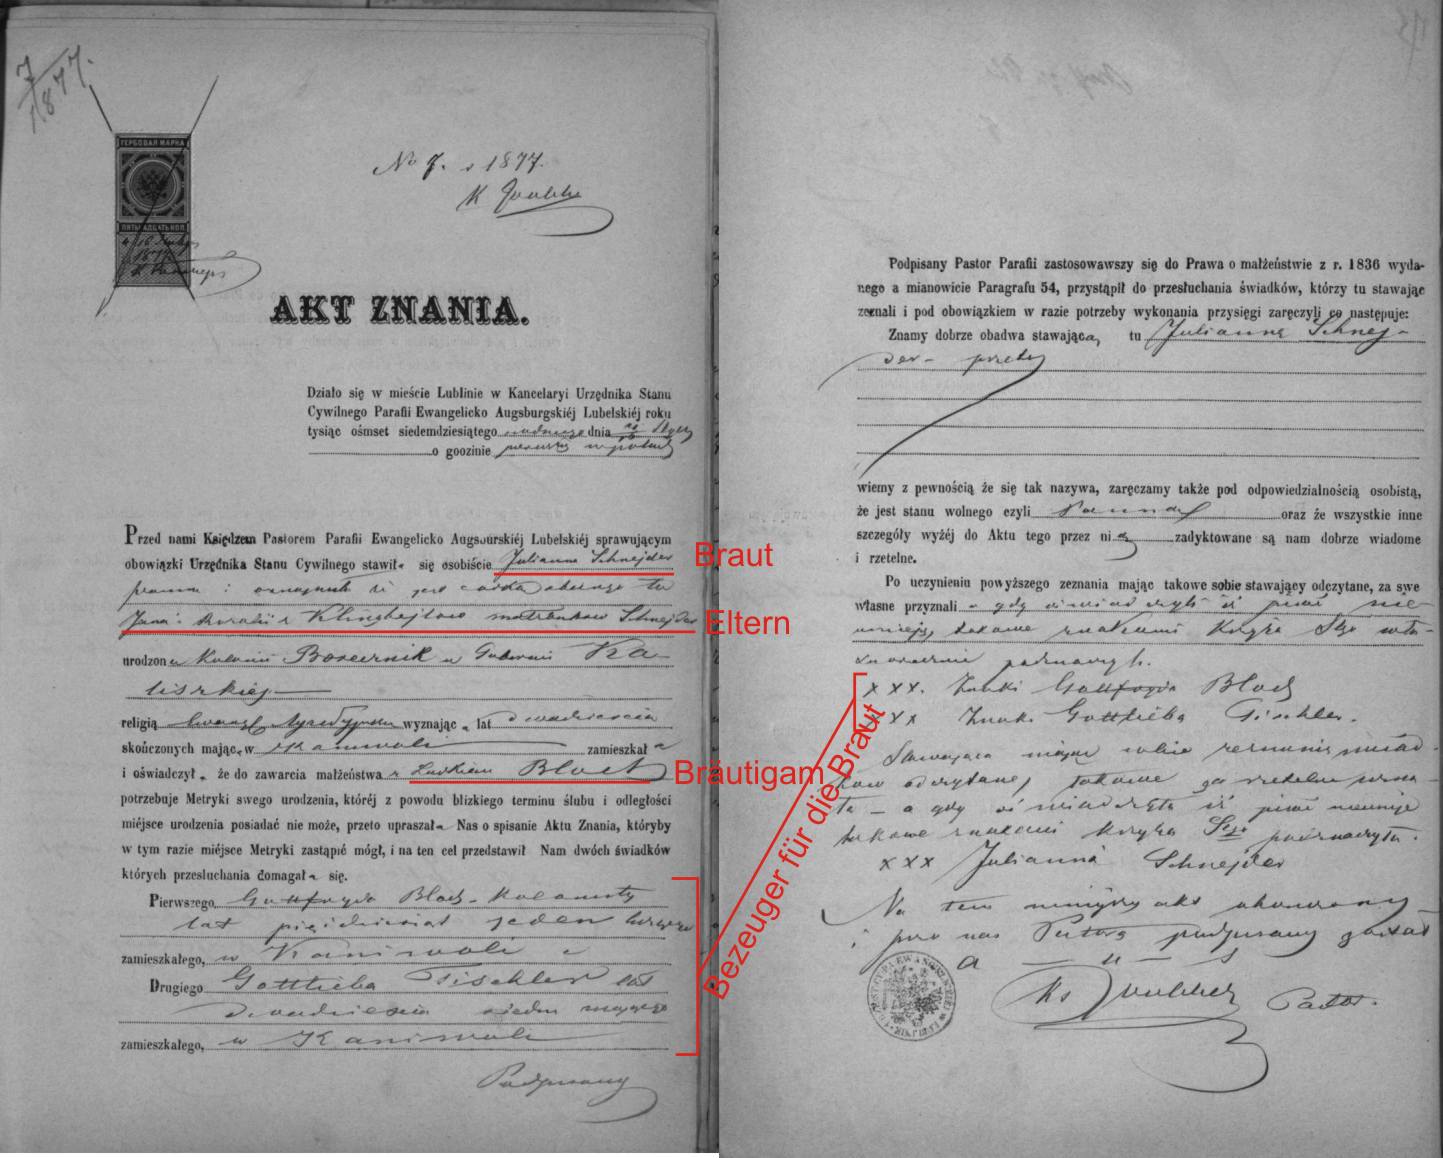 7
1877.
ГЕРБОВАЯ МАРКА
ПЯТНАДЦАТЬ КОП
1877
No 7. r 1877.
K
AKT ZNANIA.
Działo się w mieście Lublinie w Kancelaryi Urzędnika Stanu
Cywilnego Parafii Ewangelicko Augsburgskiéj Lubelskiéj roku
tysiąc ośmset siedemdziesiątego siódmego dnia
o goozinie pierwszej
Przed nami Księdzem Pastorem Parafii Ewangelicko Augsburskiéj Lubelskiéj sprawującym
obowiązki Urzędnika Stanu Cywilnego stawiła się osobiście Julianna Schnejder
Braut
panna i oznajmiła iż jest córką
Jana i Rozalii z małżonków Schnejder
Eltern
urodzona w Kolonii w Gubernii Ka-
liszkiej
religią Ewang wyznając a lat dwadzieścia
skończonych mając, w Kaniwoli zamieszkała
i oświadczyła, że do zawarcia małżeństwa z Ludkiem Bloch
Bräutigam
potrzebuje Metryki swego urodzenia, któréj z powodu blizkiego terminu ślubu i odległości
miéjsce urodzenia posiadać nie może, przeto upraszała Nas o spisanie Aktu Znania, któryby
w tym razie miéjsce Metryki zastąpić mógł, i na ten cel przedstawił Nam dwóch świadków
których przesłuchania domagała się.
Pierwszego, Gottfryda Bloch Kolonisty
lat pięćdziesiąt jeden liczącego
zamieszkałego, w Kaniwoli i
Drugiego Gottlieba Tischler lat
dwadzieścia siedm mającego
zamieszkałego, w Kaniwoli
Podpisany
Bezeuger für die Braut
Podpisany Pastor Parafii zastosowawszy się do Prawa o małżeństwie z r. 1836 wyda-
nego a mianowicie Paragrafu 54, przystąpił do przesłuchania świadków, którzy tu stawając
zeznali i pod obowiązkiem w razie potrzeby wykonania przysięgi zaręczyli co następuje:
Znamy dobrze obadwa stawającą tu Juliannę Schnej-
der
wiemy z pewnością że się tak nazywa, zaręczamy także pod odpowiedzialnością osobistą,
że jest stanu wolnego czyli Panną oraz że wszystkie inne
szczegóły wyżéj do Aktu tego przez nią zadyktowane są nam dobrze wiadome
i rzetelne.
Po uczynieniu powyższego zeznania mając takowe sobie stawający odczytane, za swe
własne przyznali a gdy oświadczyli iż pisać nie
umieją, takowe znakami Krzyża Sgo wła-
snoręcznie podznaczyli.
xxx. Znaki Gottfryda Bloch
xxx Znak. Gottlieba Tischler.
Stawająca mając sobie zeznanie świad-
ków odczytane, takowe za rzetelne uzna-
ła - a gdy oświadczyła iż pisać nieumie
takowe znakami Krzyża Sgo podznaczyła.
xxx Julianna Schnejder
Na tem niniejszy akt ukończony
i przez nas Pastora podpisany został
Ks Pastor.